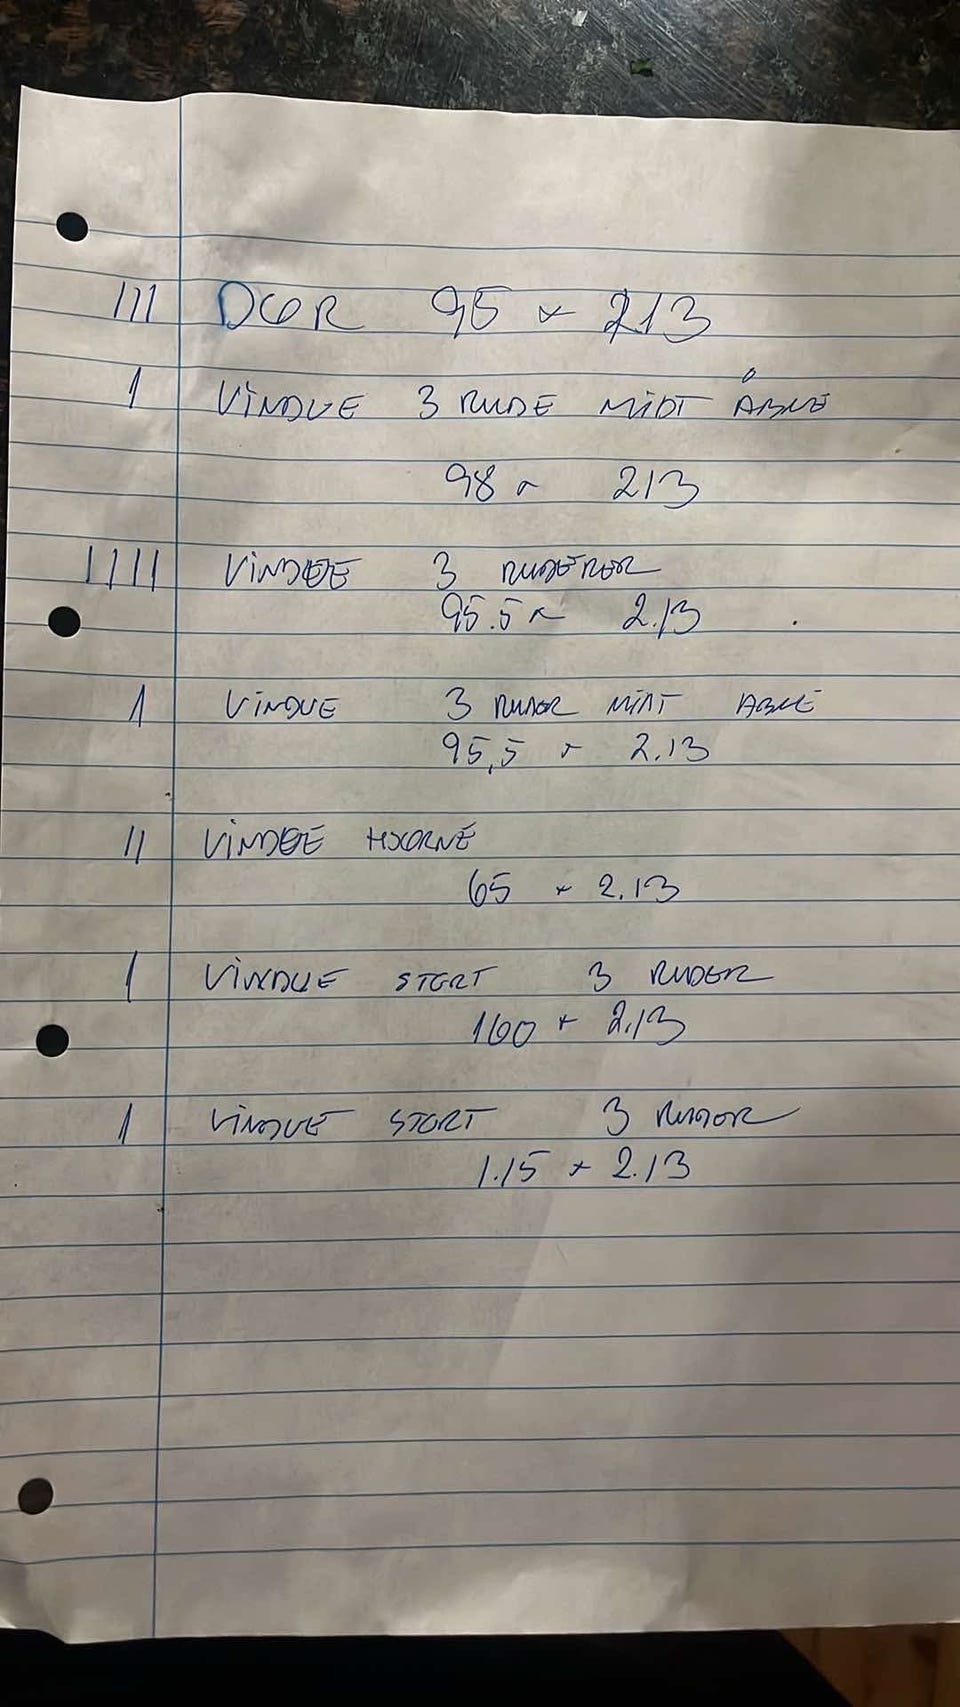 III DØR 95 x 213
1 VINDUE 3 RUDE MIDT ÅBNE
98 x 213
IIII VINDUE 3 RUDERER
95.5 x 2.13
1 VINDUE 3 RUDER MIDT ABNE
95,5 x 2.13
II VINDUE HJØRNE
65 x 2.13
1 VINDUE STORT 3 RUDER
160 x 2.13
1 VINDUE STORT 3 RUDER
1.15 x 2.13